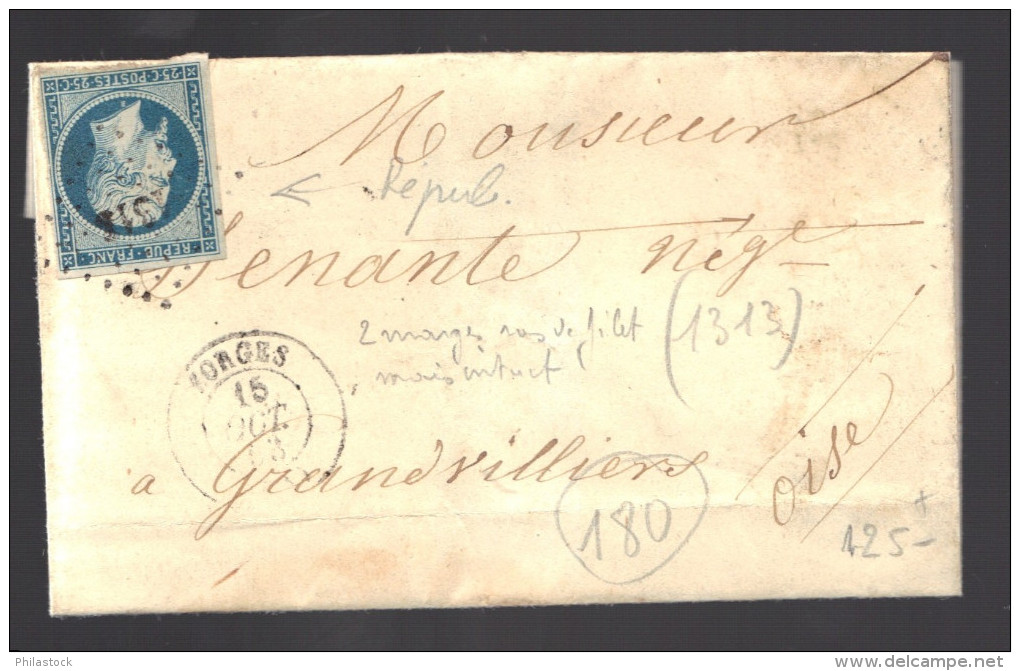 25·C·POSTES·25·C
REPUB·FRANC
Monsieur
← Répub.
Senante nég^e
2 marges ras de filet (1313)
mais intact
FORGES
15
OCT.
53
a Grandvilliers
Oise
180
125-
Philastock
http://www.delcampe.net